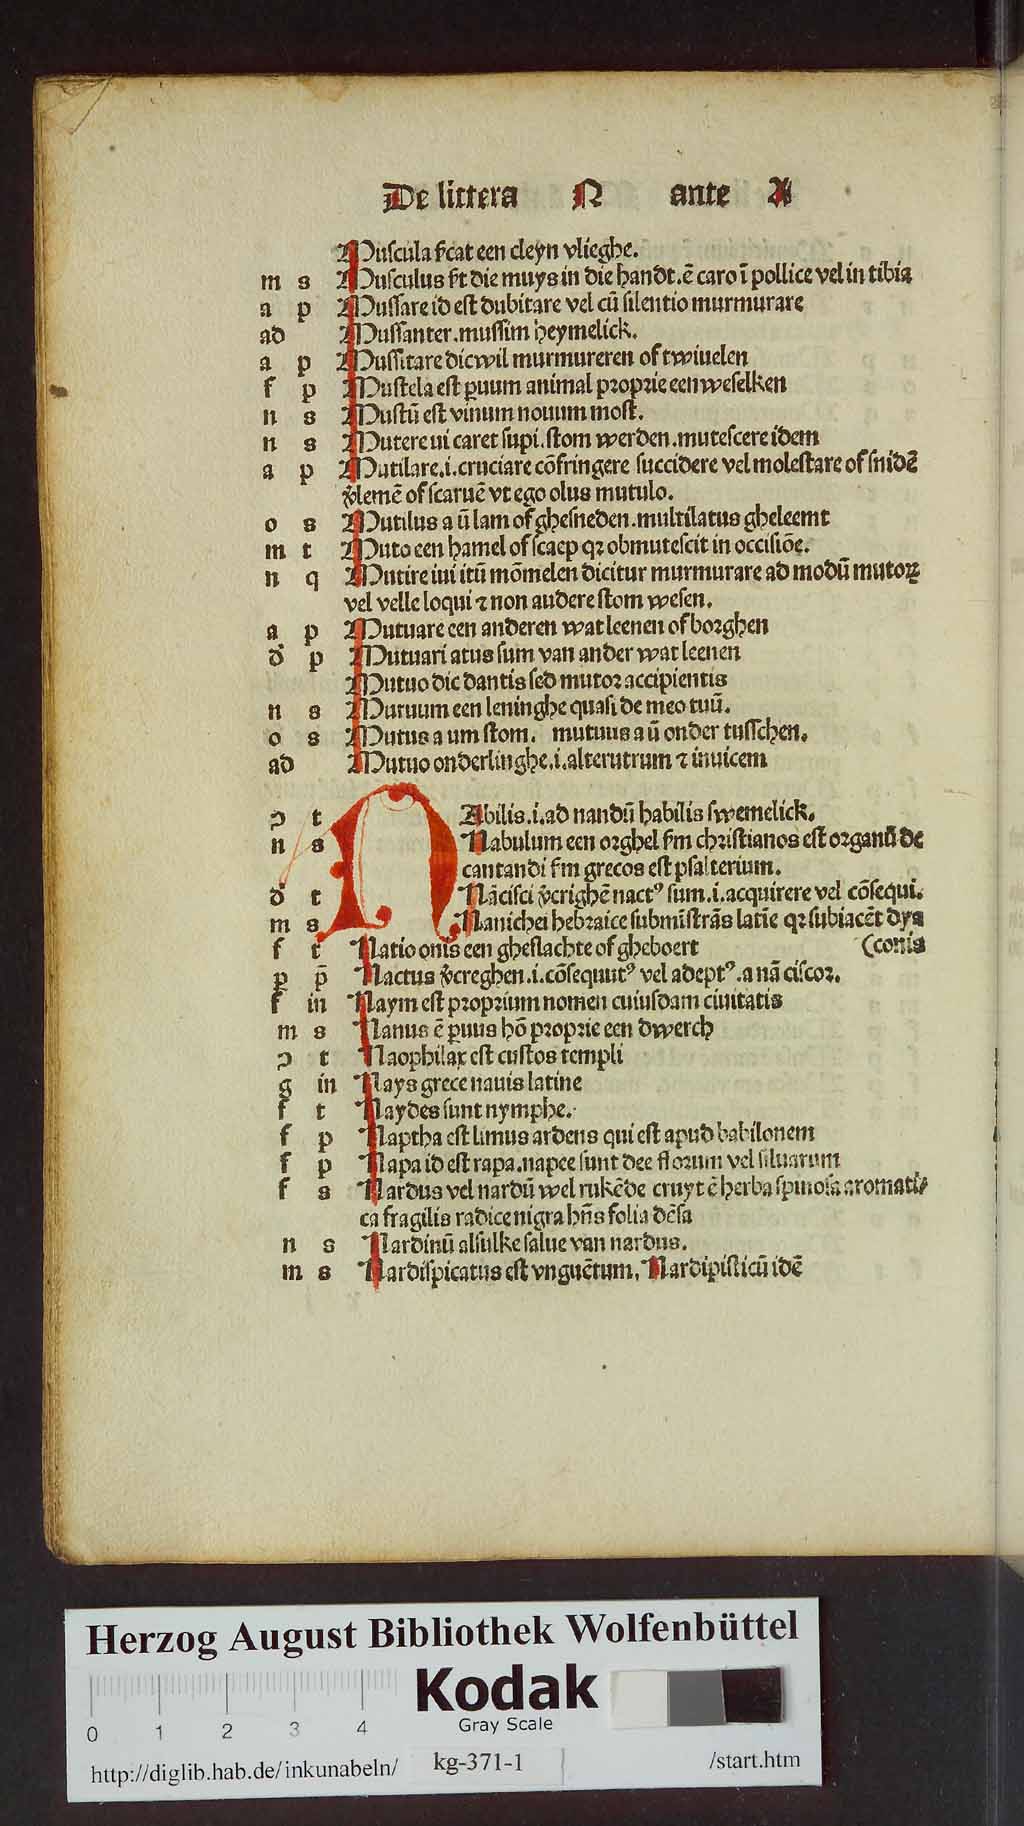 De littera N ante A
Muscula ſicat een cleyn vlieghe.
m s Muſculus ſt die muys in die handt. ē caro ī pollice vel in tibia
a p Muſſare id eſt dubitare vel cū ſilentio murmurare
ad Muſſanter. muſſim heymelick.
a p Muſſitare dicwil murmureren of twiuelen
f p Muſtela eſt ꝑuum animal propꝛie een weſelken
n s Muſtū eſt vinum nouum moſt.
n s Mutere ui caret ſupi. ſtom werden. muteſcere idem
a p Mutilare .i. cruciare cōfringere ſuccidere vel moleſtare of ſnidē
v̓lemē of ſcaruē vt ego olus mutulo.
o s Mutilus a ū lam of gheſneden. multilatus gheleemt
m t Muto een hamel of ſcaep qꝛ obmuteſcit in occiſiōe.
n q Mutire iui itū mōmelen dicitur murmurare ad modū mutoꝝ
vel velle loqui ⁊ non audere ſtom weſen.
a p Mutuare een anderen wat leenen of boꝛghen
d̓ p Mutuari atus ſum van ander wat leenen
Mutuo dic dantis ſed mutoꝛ accipientis
n s Mutuum een leninghe quaſi de meo tuū.
o s Mutus a um ſtom. mutuus a ū onder tuſſchen.
ad Mutuo onderlinghe .i. alterutrum ⁊ inuicem
ɔ t NAbilis .i. ad nandū habilis ſwemelick.
n s Nabulum een oꝛghel ſm chꝛiſtianos eſt oꝛganū de
cantandi ſm grecos eſt pſalterium.
d̓ t Nāciſci v̓crighē nactꝰ ſum .i. acquirere vel cōſequi.
m s Nanichei hebꝛaice ſubmīſtrās latīe qꝛ ſubiacēt dya
f t Natio onis een gheſlachte of gheboert (conis
p p̄ Nactus v̓creghen .i. cōſequutꝰ vel adeptꝰ. a nā ciſcoꝛ.
f in Naym eſt pꝛopꝛium nomen cuiuſdam ciuitatis
m s Nanus ē ꝑuus hō pꝛopꝛie een dwerch
ɔ t Naophilax eſt cuſtos templi
g in Nays grece nauis latine
f t Naydes ſunt nymphe.
f p Naptha eſt limus ardens qui eſt apud babilonem
f p Napa id eſt rapa. napee ſunt dee floꝛum vel ſiluarum
f s Nardus vel nardū wel rukēde cruyt ē herba ſpinoſa aromati⸗
ca fragilis radice nigra hn̄s folia dēſa
n s Nardinū alſulke ſalue van nardus.
m s Nardiſpicatus eſt vnguētum. Nardipiſticū idē
Herzog August Bibliothek Wolfenbüttel
Kodak
Gray Scale
0 1 2 3 4
http://diglib.hab.de/inkunabeln/ kg-371-1 /start.htm